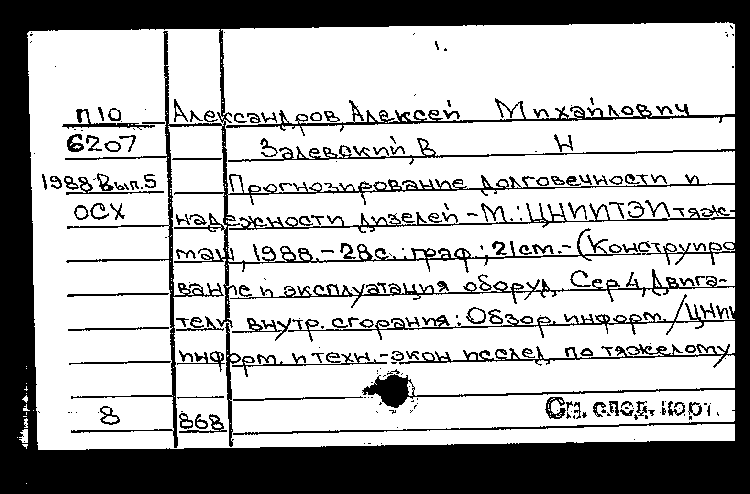 1.
П10 Александров, Алексей Михайлович,
6207 Залевский, В Н
1988 Вып.5 Прогнозирование долговечности и
ОСХ надежности дизелей - М.: ЦНИИТЭИтяж-
маш, 1988. - 28с. : граф.; 21см. - (Конструиро
вание и эксплуатация оборуд. Сер 4, Двига-
тели внутр. сгорания: Обзор. информ. / ЦНИИ
информ. и техн.-экон исслед. по тяжелому
8 868 См. след. карт.